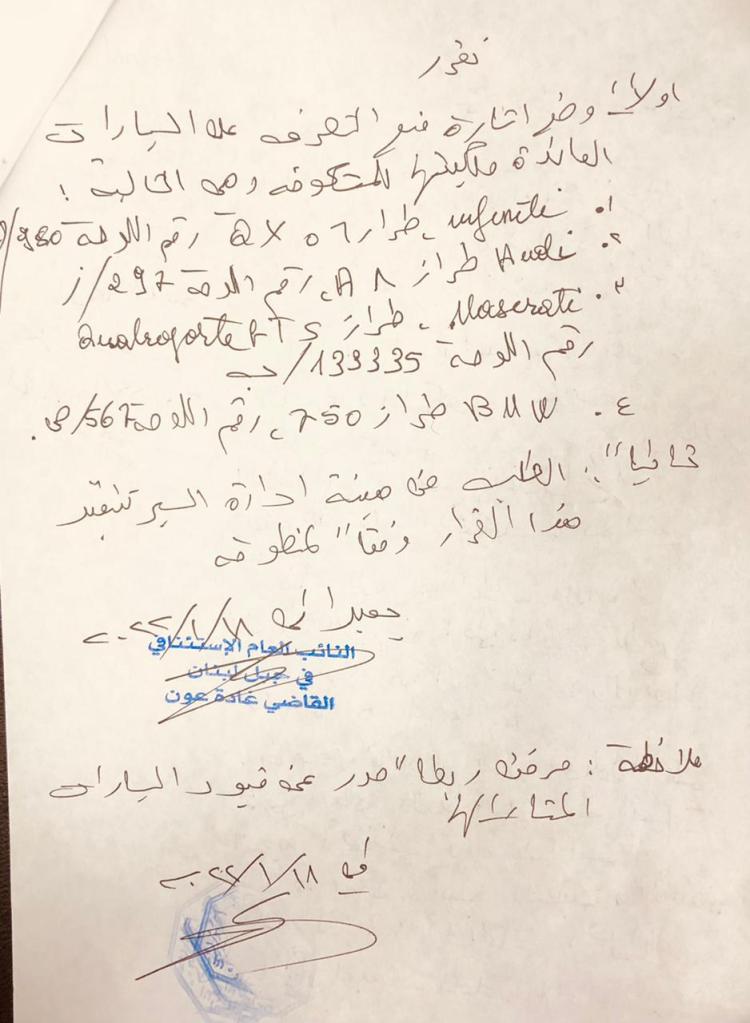 نقرر
اولاً: وضع اشارة منع التصرف على السيارات
العائدة ملكيتها للمتكوفه وهي التالية :
١. infiniti، طراز QX ٥٦ رقم اللوحة 980/
٢. Audi طراز A ٨، رقم اللوحة 297/ز
٣. Maserati، طراز Quatroporte GTS
رقم اللوحة 133335/ب
٤. BMW طراز 750، رقم اللوحة 567/ص.
ثانياً": الطلب من هيئة ادارة السير تنفيذ
هذا القرار وفقاً" لمنطوقه
بعبدا في ٢٠٢٢/١/١٨
النائب العام الإستئنافي
في جبل لبنان
القاضي غادة عون
ملاحظة : مرفق ربطاً" صور عن قيود السيارات
المشار اليها
في ٢٠٢٢/١/١٨